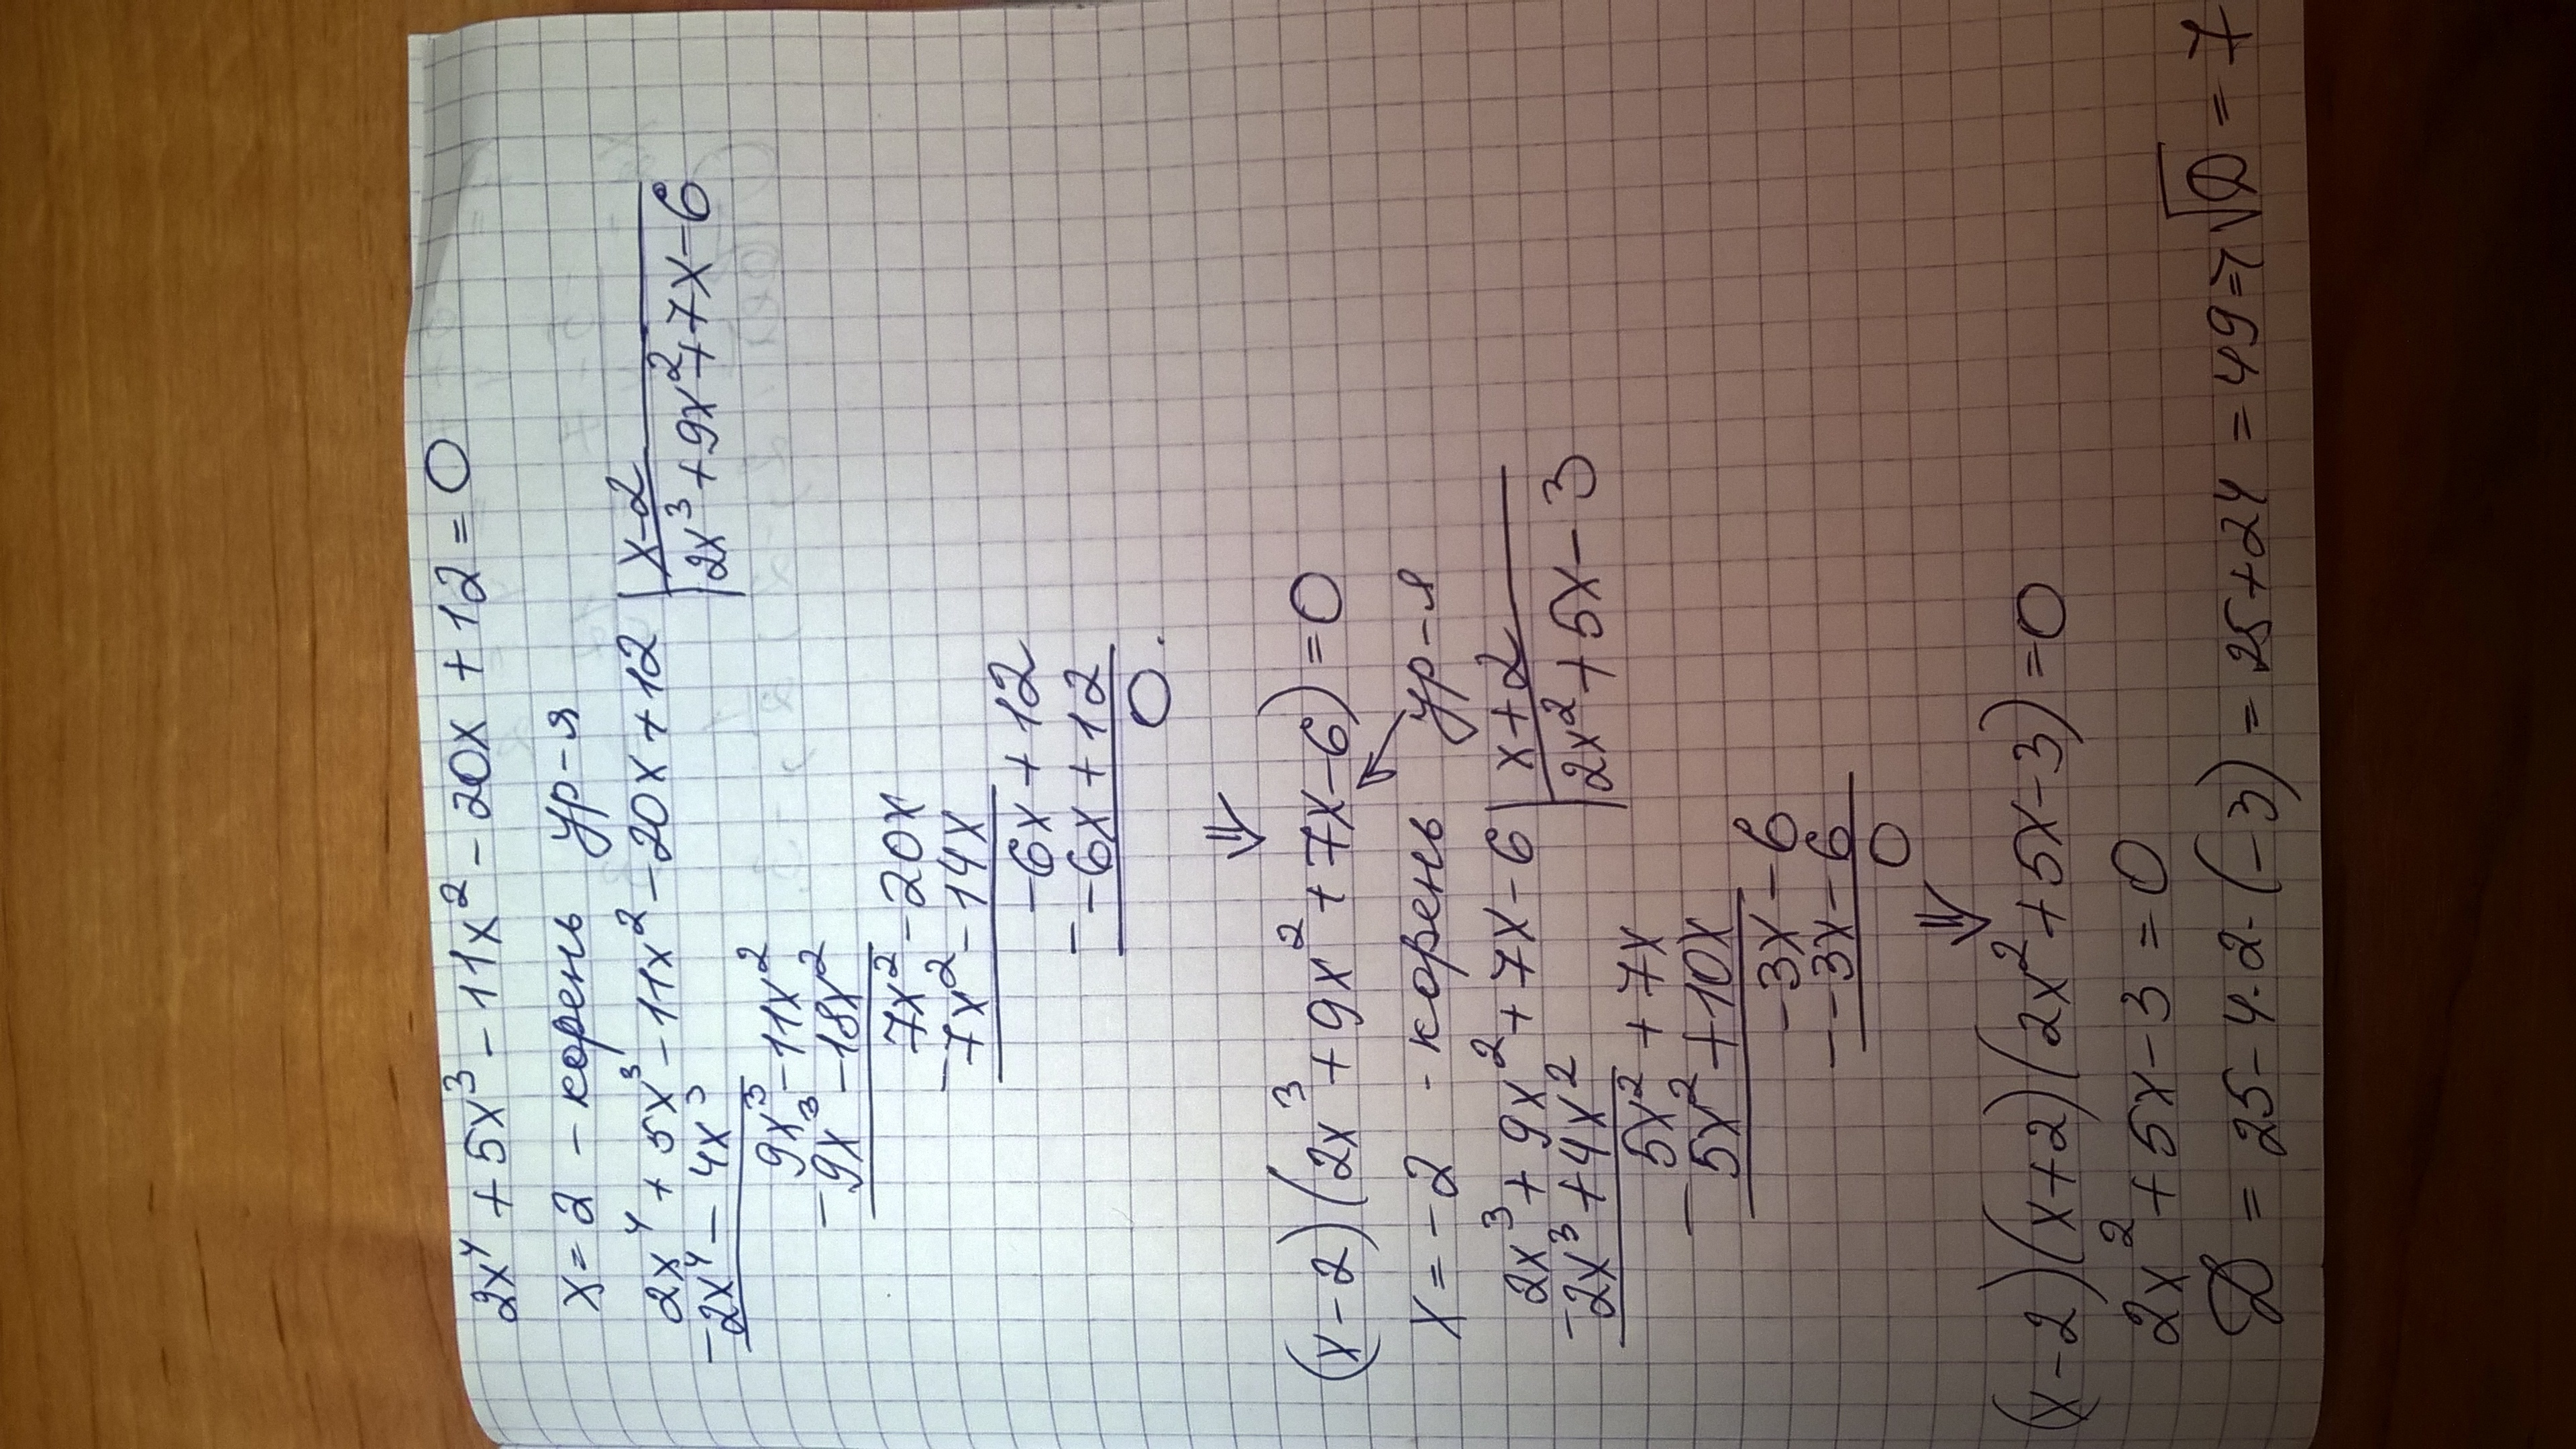 2x⁴ + 5x³ - 11x² - 20x + 12 = 0
x = 2 - корень ур-я
2x⁴ + 5x³ - 11x² - 20x + 12 | x - 2
- 2x⁴ - 4x³ | 2x³ + 9x² + 7x - 6
9x³ - 11x²
- 9x³ - 18x²
7x² - 20x
- 7x² - 14x
- 6x + 12
- - 6x + 12
0.
⇓
(x - 2)(2x³ + 9x² + 7x - 6) = 0
x = - 2 - корень ур-я
2x³ + 9x² + 7x - 6 | x + 2
- 2x³ + 4x² | 2x² + 5x - 3
5x² + 7x
- 5x² + 10x
- 3x - 6
- - 3x - 6
0
⇓
(x - 2)(x + 2)(2x² + 5x - 3) = 0
2x² + 5x - 3 = 0
D = 25 - 4 · 2 · (-3) = 25 + 24 = 49 => √D = 7